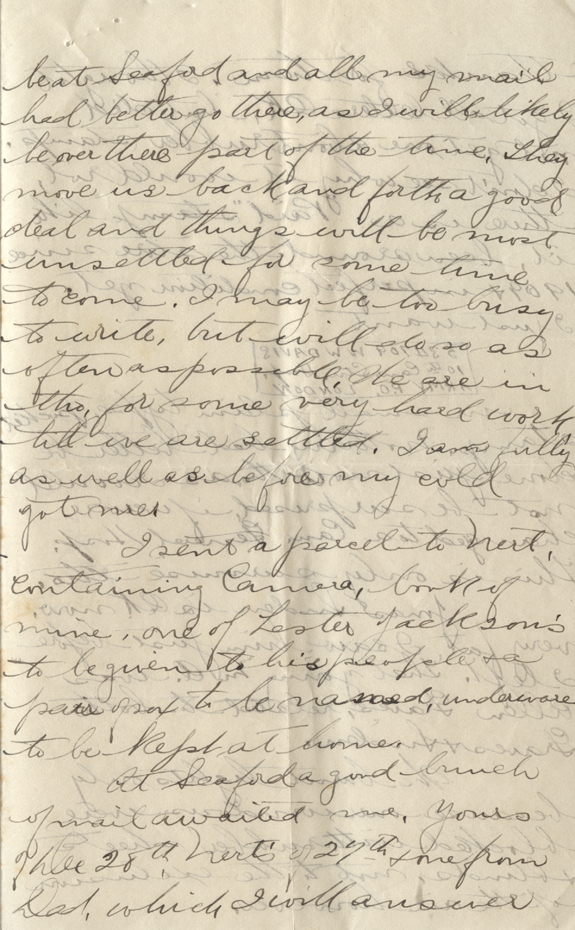 be at Seaford and all my mail
had better go there, as I will likely
be over there part of the time. They
move us back and forth a good
deal and things will be most
unsettled for some time
to come. I may be too busy
to write, but will do so as
often as possible. We are in
tho, for some very hard work
till we are settled. I am fully
as well as before my cold
got me.
I sent a parcel to Nert,
containing Camera, book of
mine, one of Lester Jackson's
to be given to his people & a
pair of sox to be named, underware
to be kept at home.
At Seaford a good bunch
of mail awaited me. Yours
of Dec 28th, Nert's of 27th & one from
Dad, which I will answer